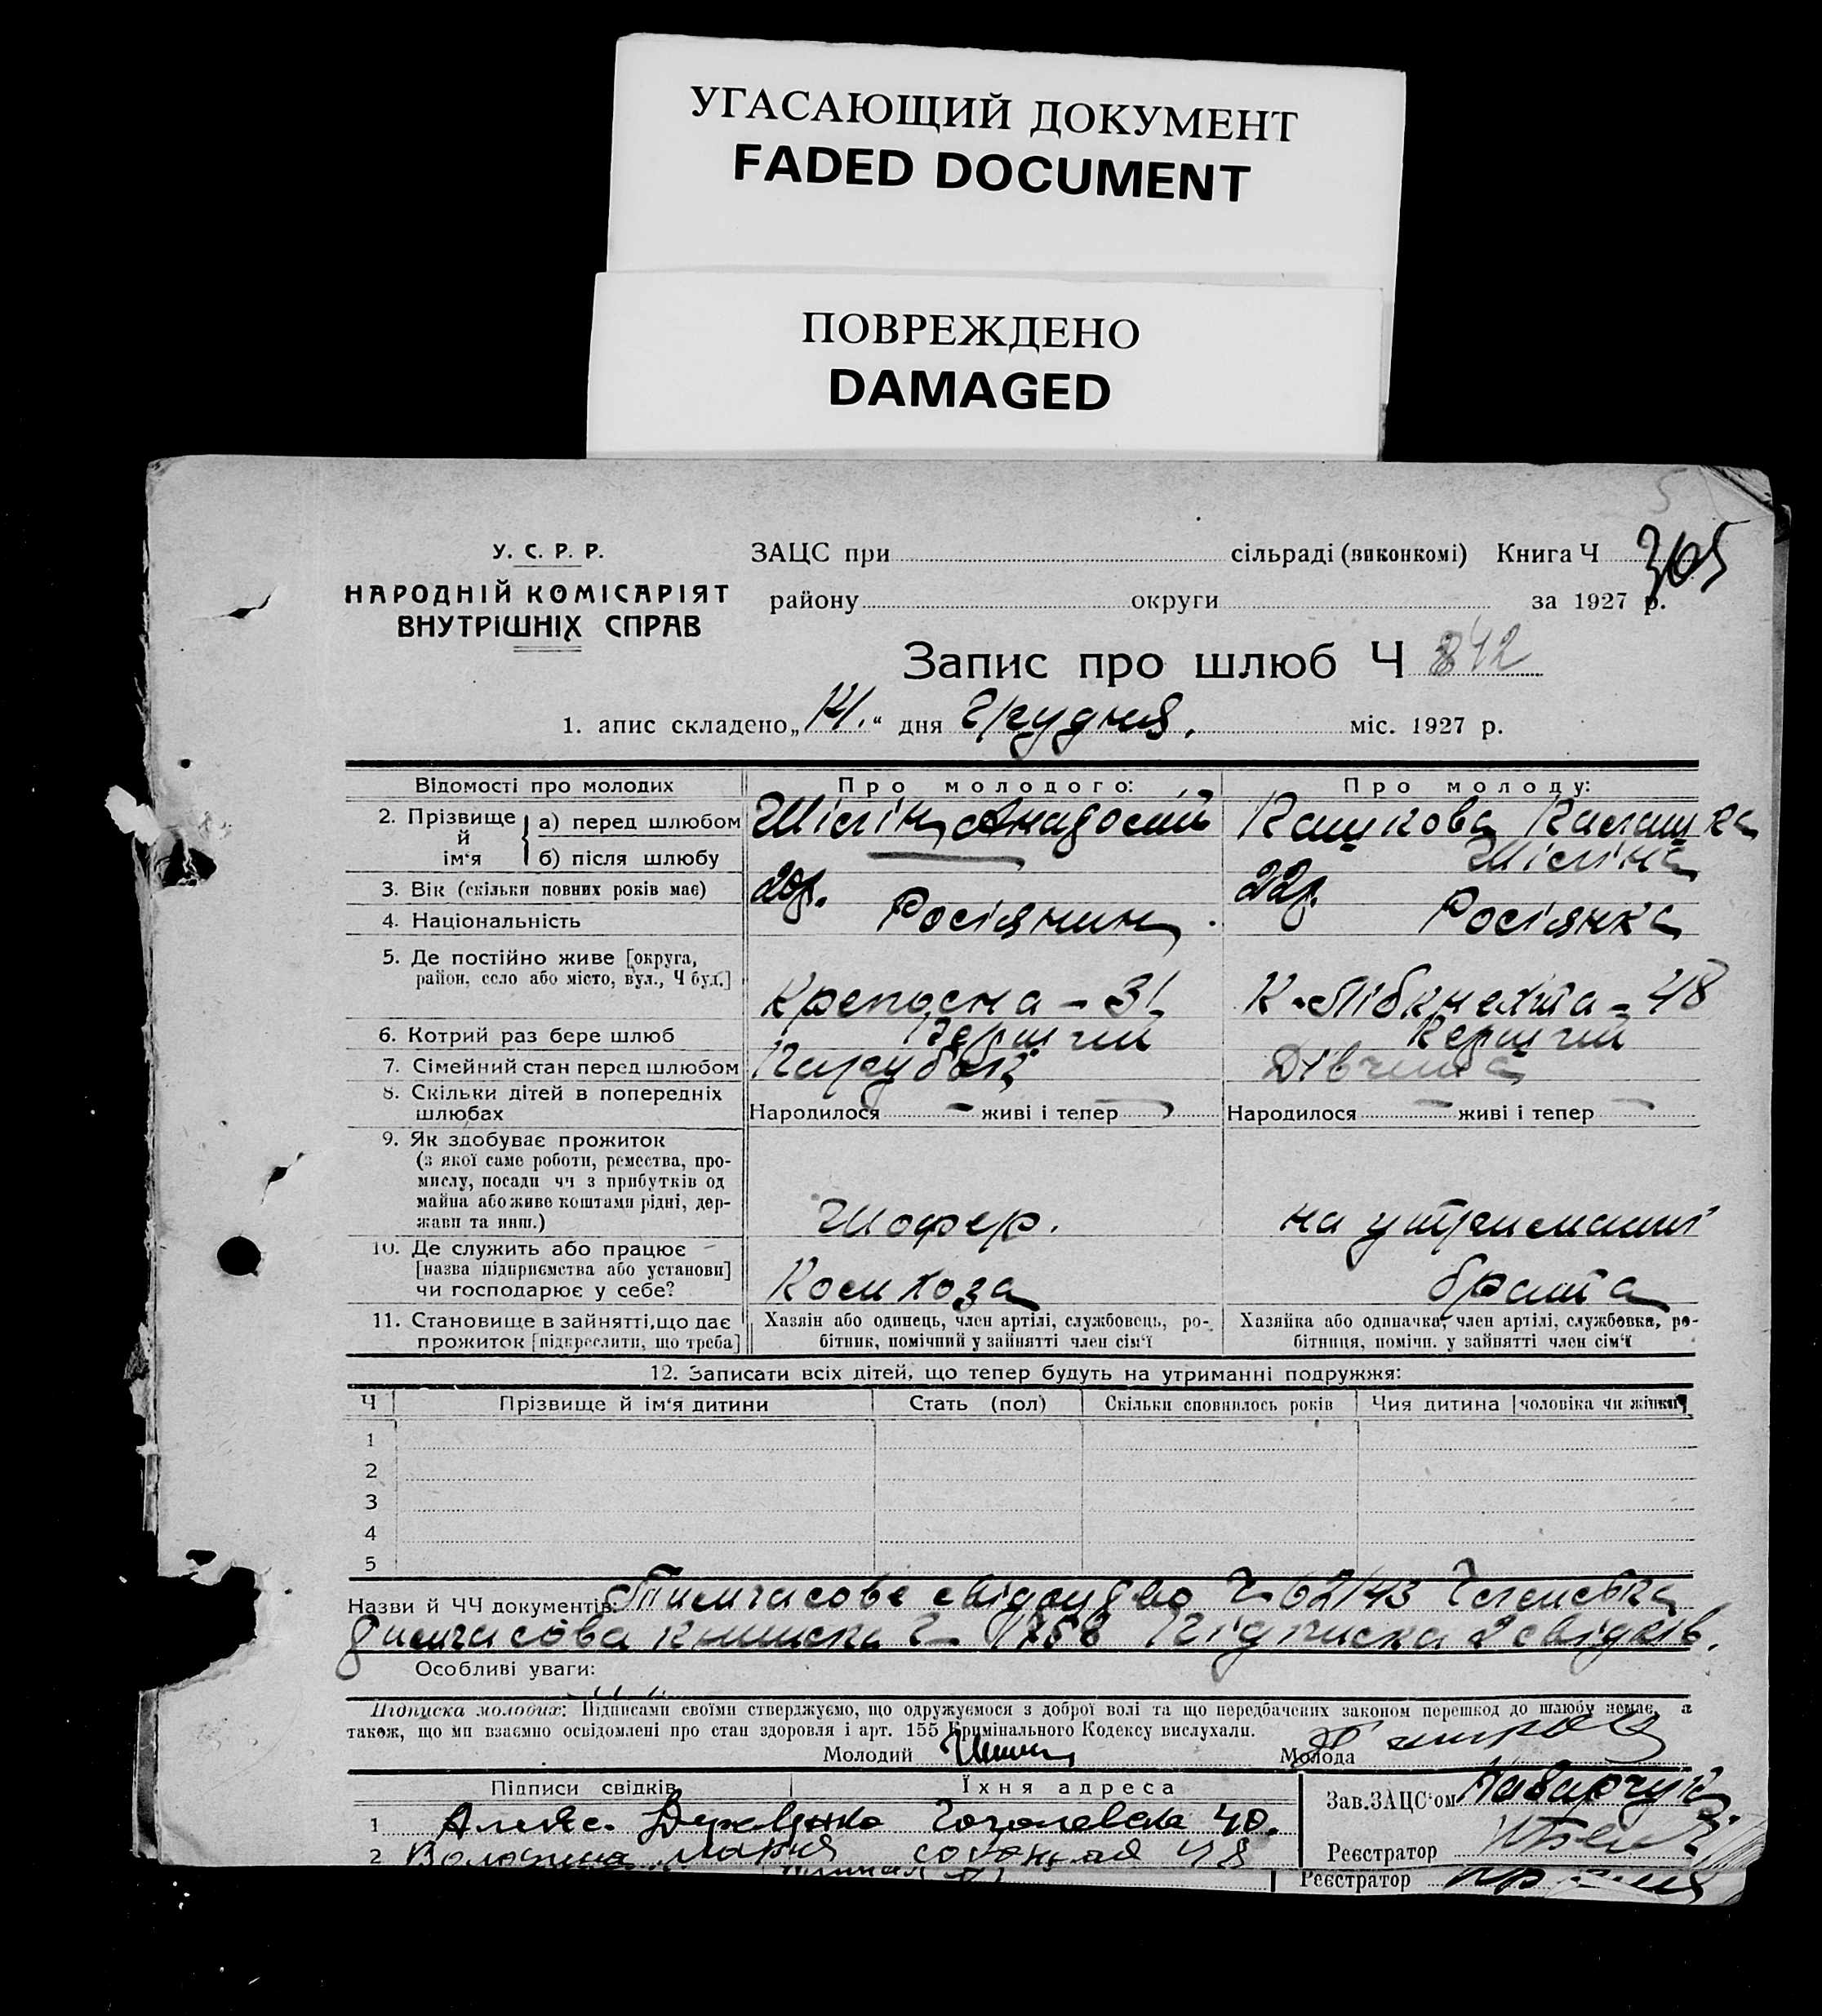 УГАСАЮЩИЙ ДОКУМЕНТ
FADED DOCUMENT
ПОВРЕЖДЕНО
DAMAGED
У. С. Р. Р.
НАРОДНІЙ КОМІСАРІЯТ
ВНУТРІШНІХ СПРАВ
ЗАЦС при сільраді (виконкомі) Книга Ч 305
району округи за 1927 р.
Запис про шлюб Ч 842
1. апис складено „14.“ дня Грудня. міс. 1927 р.
Відомості про молодих Про молодого: Про молоду:
2. Прізвище й ім‘я
а) перед шлюбом Кашкова
б) після шлюбу
3. Вік (скільки повних років має) 20р. 22р.
4. Національність Росіянин. Росіянка
5. Де постійно живе [округа,
район, село або місто, вул., Ч буд.]
Крепосна - 31 К-Лібкнехта - 48
6. Котрий раз бере шлюб Перший Перший
7. Сімейний стан перед шлюбом Парубок Дівчина
8. Скільки дітей в попередніх
шлюбах
Народилося - живі і тепер - Народилося - живі і тепер -
9. Як здобуває прожиток
(з якої саме роботи, ремества, про-
мислу, посади чи з прибутків од
майна або живе коштами рідні, дер-
жави та инш.)
Шофер. на утриманні
10. Де служить або працює
[назва підприємства або установи]
чи господарює у себе?
брата
11. Становище в зайнятті, що дає
прожиток [підкреслити, що треба]
Хазяін або одинець, член артілі, службовець, ро-
бітник, помічний у зайнятті член сім‘ї
Хазяйка або одиначка, член артілі, службовка, ро-
бітниця, помічн. у зайнятті член сім‘ї
12. Записати всіх дітей, що тепер будуть на утриманні подружжя:
Ч Прізвище й ім‘я дитини Стать (пол) Скільки сповнилось років Чия дитина [чоловіка чи жінки]
1
2
3
4
5
Назви й ЧЧ документів: Тимчасове свідоцтво Ч 62143
тимчасова книжка Ч 1758 Підписка 2 свідків.
Особливі уваги:
Підписка молодих: Підписами своїми стверджуємо, що одружуємося з доброї волі та що передбачених законом перешкод до шлюбу немає, а
також, що ми взаємно освідомлені про стан здоровля і арт. 155 Кримінального Кодексу вислухали.
Молодий Молода
Підписи свідків Їхня адреса
1 40.
2 Мария 48
Зав. ЗАЦС‘ом
Реєстратор
Реєстратор